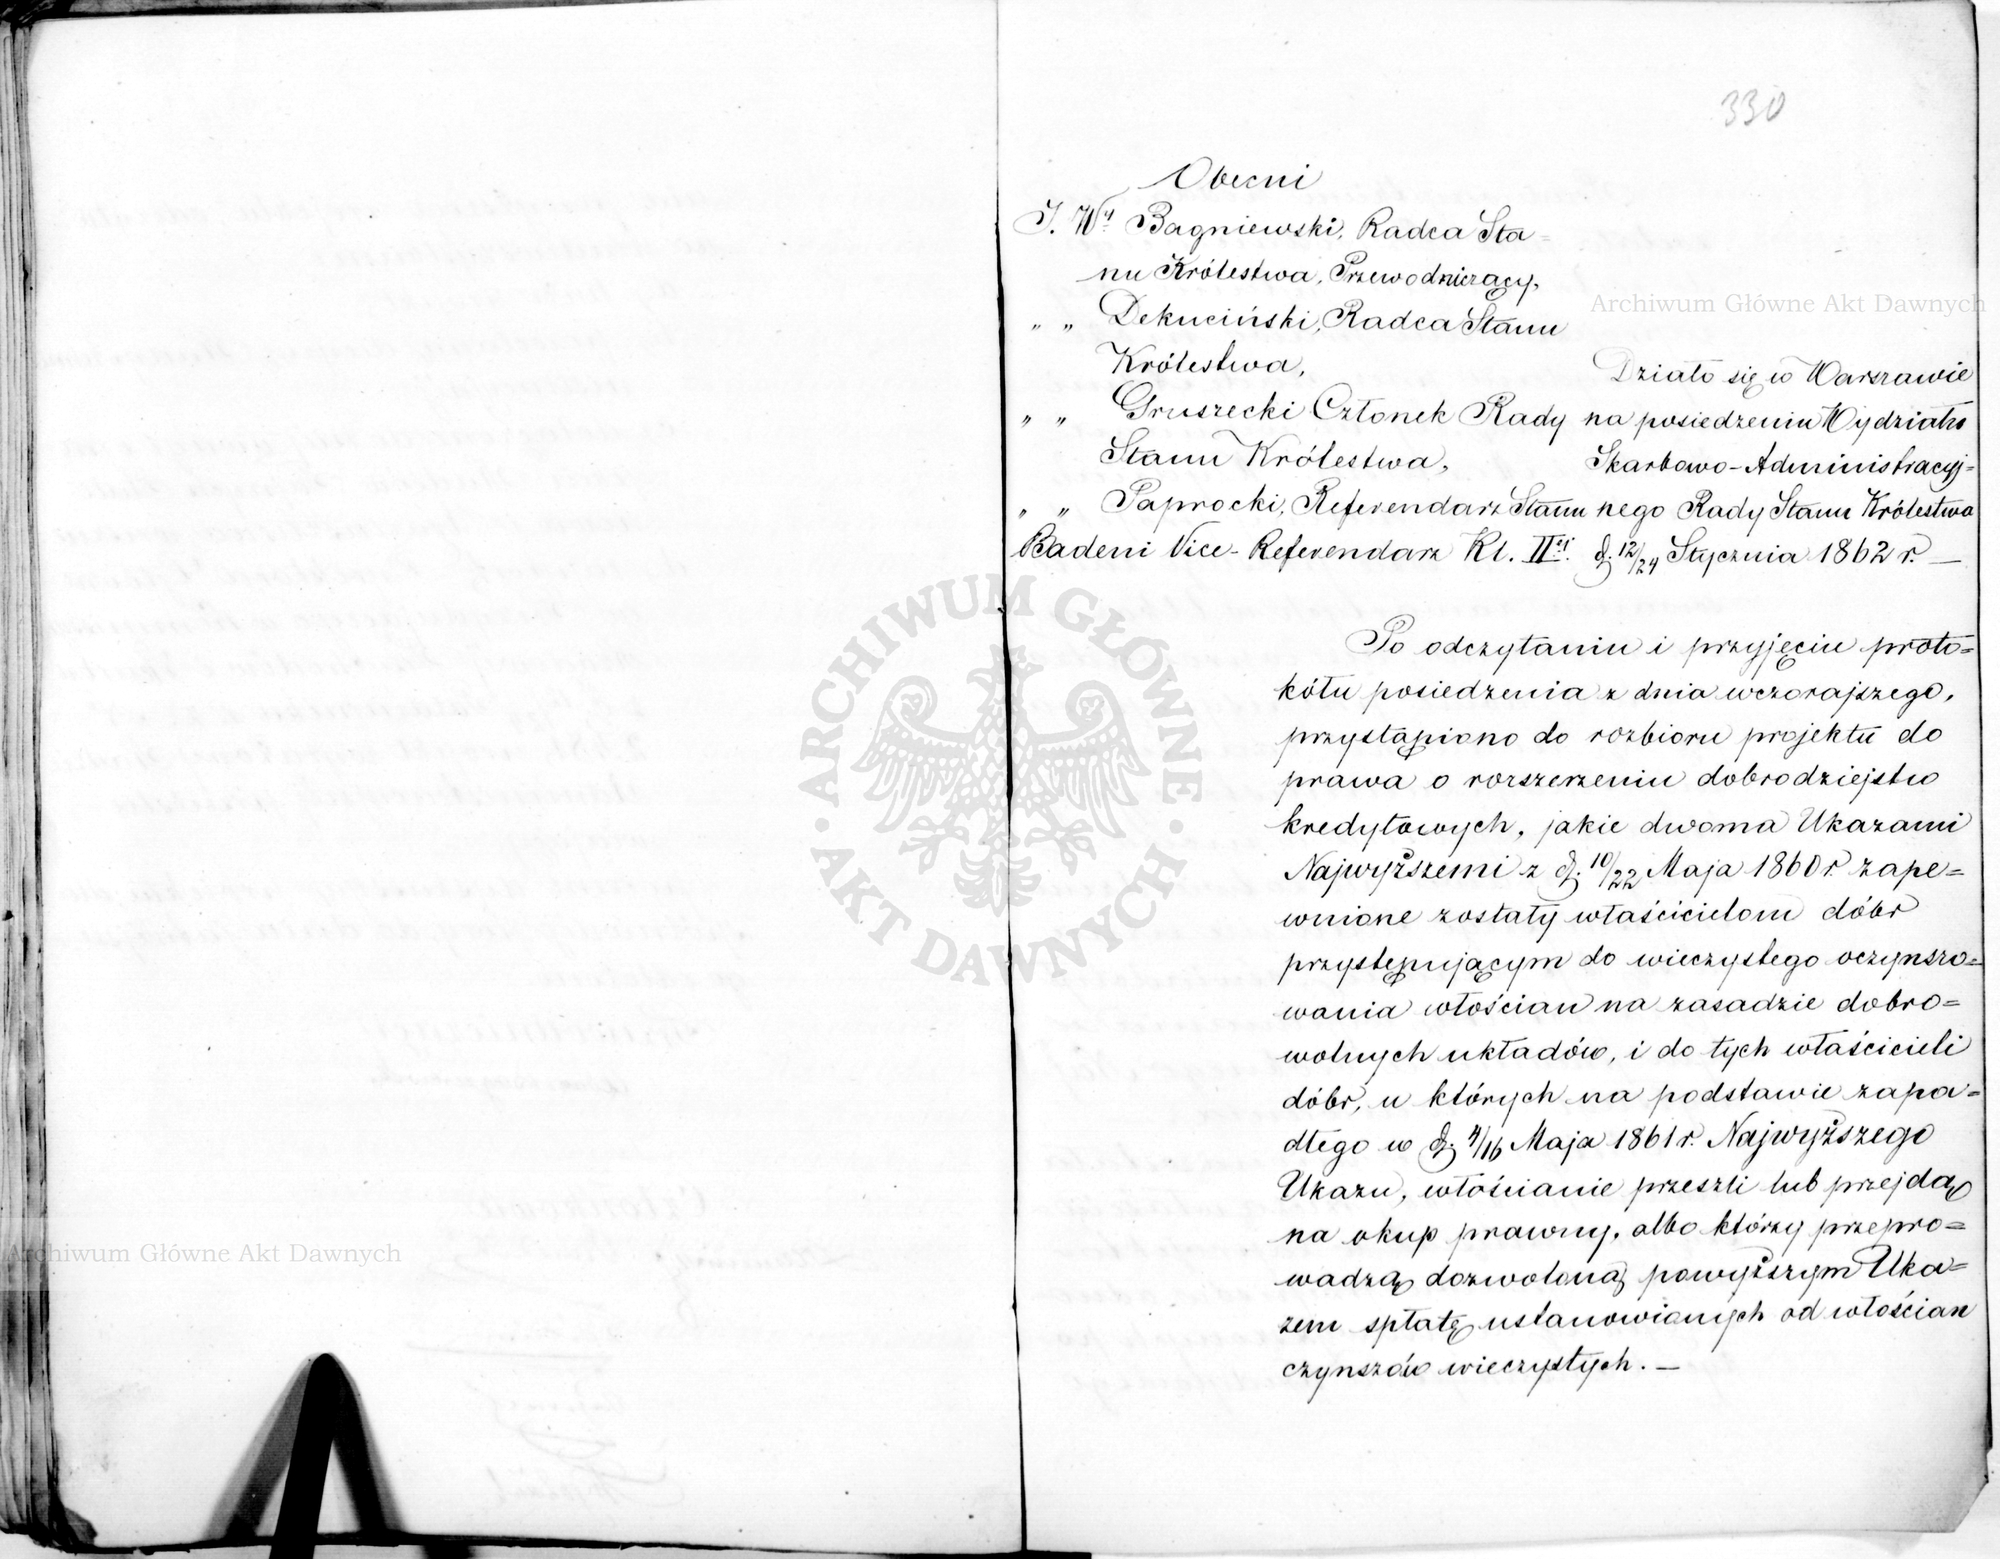 330
Obecni
J. Wy Bagniewski, Radca Sta=
nu Królestwa, Przewodniczący,
" " Dekuciński, Radca Stanu
Królestwa,
" " Gruszecki Członek Rady
Stanu Królestwa,
" " Paprocki, Referendarz Stanu
Badeni Vice-Referendarz Kl. IIej.
Działo się w Warszawie
na posiedzeniu Wydziału
Skarbowo-Administracyj=
nego Rady Stanu Królestwa
d. 12/24 Stycznia 1862 r. —
Po odczytaniu i przyjęciu proto=
kółu posiedzenia z dnia wczorajszego,
przystąpiono do rozbioru projektu do
prawa o rozszerzeniu dobrodziejstw
kredytowych, jakie dwoma Ukazami
Najwyższemi z d. 10/22 Maja 1860 r. zape=
wnione zostały właścicielom dóbr
przystępującym do wieczystego oczynszo=
wania włościan na zasadzie dobro=
wolnych układów, i do tych właścicieli
dóbr, u których na podstawie zapa=
dłego w d. 4/16 Maja 1861 r. Najwyższego
Ukazu, włościanie przeszli lub przejdą
na okup prawny, albo którzy przepro=
wadzą dozwoloną powyższym Uka=
zem spłatę ustanowionych od włościan
czynszów wieczystych. —
Archiwum Główne Akt Dawnych
Archiwum Główne Akt Dawnych
ARCHIWUM GŁÓWNE
· AKT DAWNYCH ·